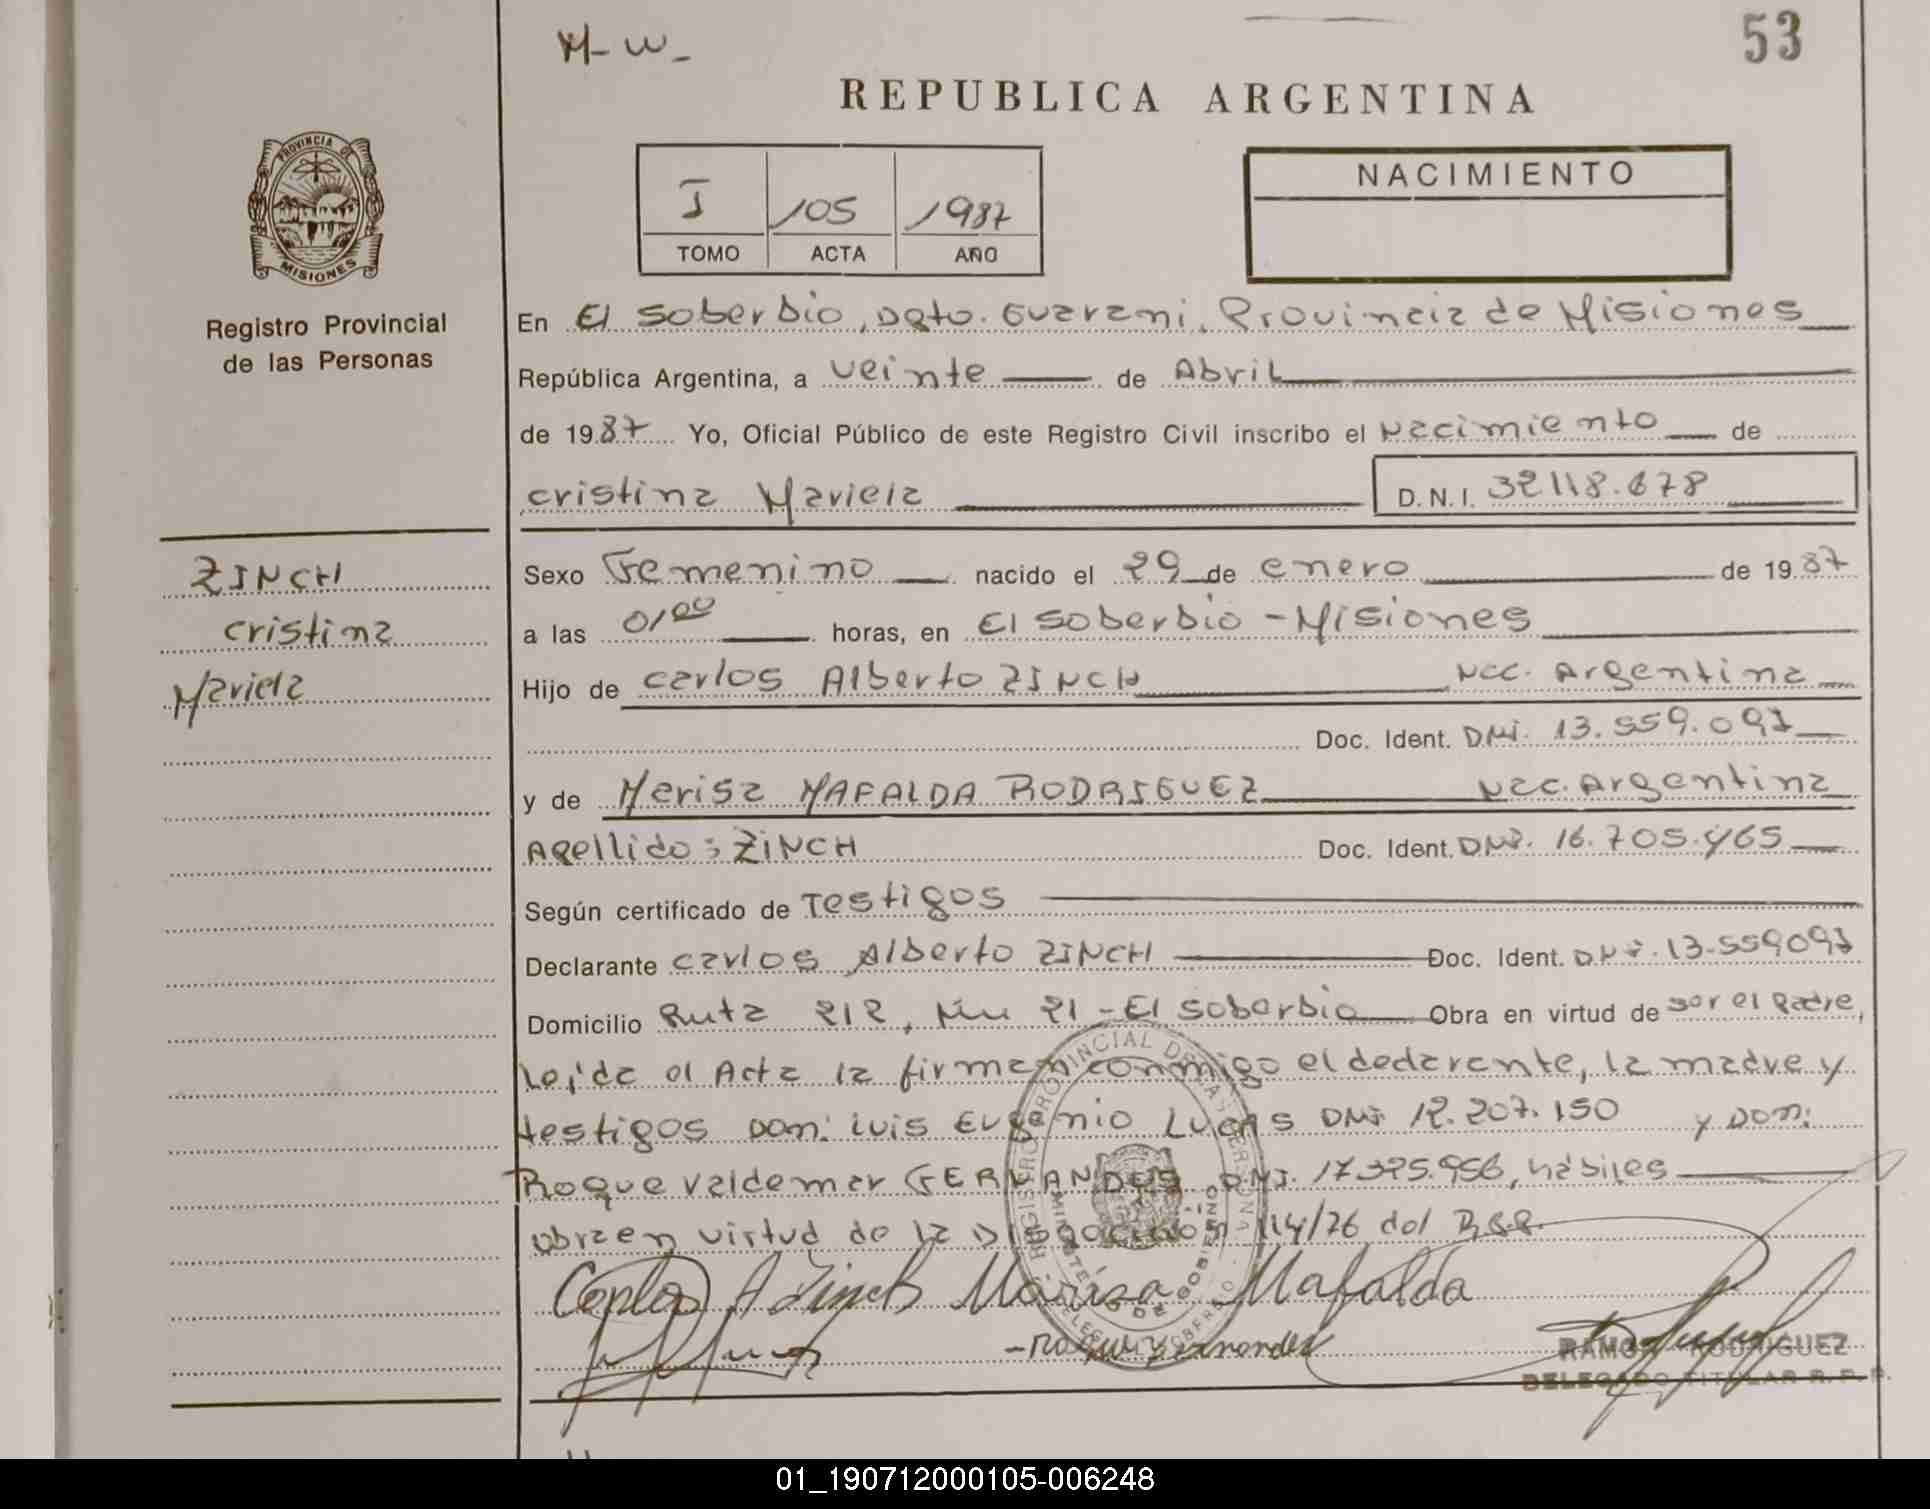 M-W-
53
REPUBLICA ARGENTINA
PROVINCIA DE
MISIONES
Registro Provincial
de las Personas
I 105 1987
TOMO ACTA AÑO
NACIMIENTO
En El Soberbio, Dpto. Guarani, Provincia de Misiones
República Argentina, a veinte de Abril
de 1987 Yo, Oficial Público de este Registro Civil inscribo el Nacimiento de
Cristina Mariela D.N.I. 32118.678
ZINCH
Cristina
Mariela
Sexo Femenino nacido el 29 de enero de 1987
a las 01,00 horas, en El Soberbio - Misiones
Hijo de Carlos Alberto ZINCH Nac. Argentina
Doc. Ident. DNI. 13.559.091
y de Marisa MAFALDA RODRIGUEZ Nac. Argentina
Apellido: ZINCH Doc. Ident. DNI. 16.705.465
Según certificado de Testigos
Declarante Carlos Alberto ZINCH Doc. Ident. DNI. 13.559091
Domicilio Ruta 212, Km 21 - El Soberbio Obra en virtud de ser el Padre,
Leida el Acta la firman conmigo el declarante, la madre y
testigos Don: Luis Eugenio DNI 12.207.150 y Don:
Roque Valdemar FERNANDES DNI. 17.325.956, habiles
obra en virtud de la Disposición 114/76 del
Carlos A Zinch Marisa Mafalda
Roque Fernandes
RAMON RODRIGUEZ
DELEGADO TITULAR R.P.P.
01_190712000105-006248